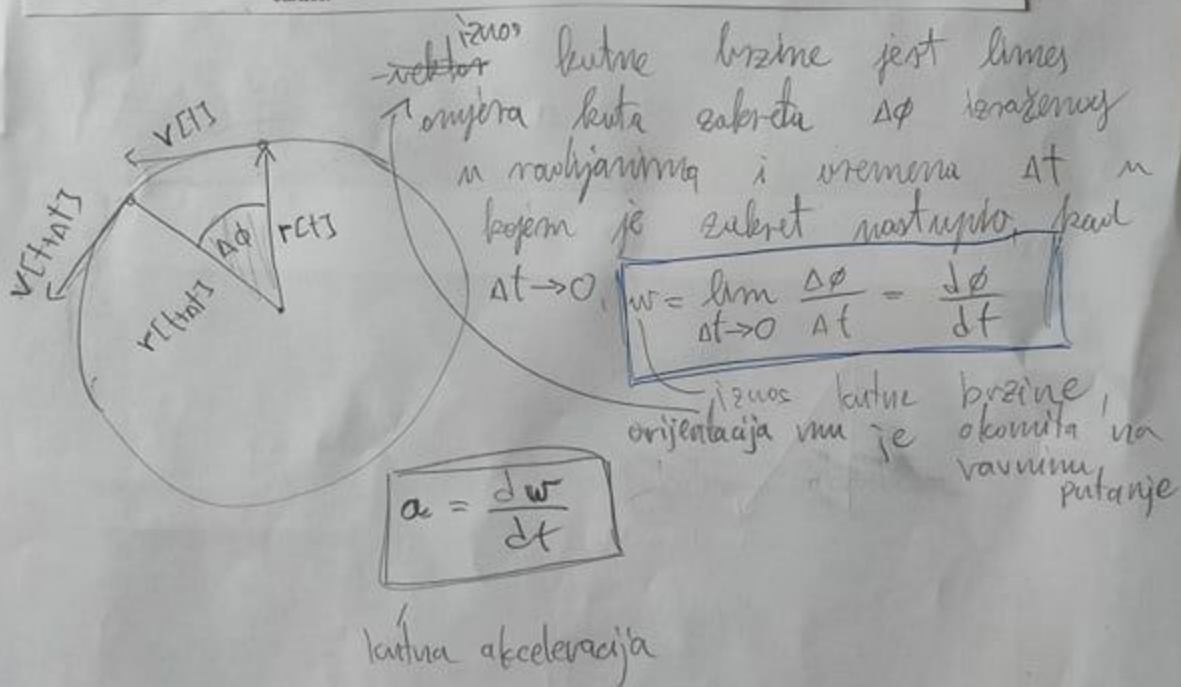 iznos
vektor kutne brzine jest limes
omjera kuta zakreta Δφ izraženog
u radijanima i vremena Δt u
kojem je zakret nastupio, kad
Δt→0.
w = lim Δφ/Δt = dφ/dt
Δt→0
iznos kutne brzine,
orijentacija mu je okomita na
ravninu
putanje
v[t]
v[t+Δt]
Δφ
r[t]
r[t+Δt]
a = dw/dt
kutna akceleracija